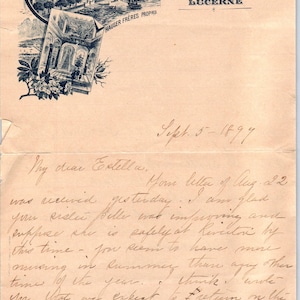 LUCERNE
HAUSER FRÈRES PROPRS
Sept. 5 - 1897
My dear Estella,
Your letter of Aug 22
was received yesterday. I am glad
your sister Belle was improving and
suppose she is safely at by
this time - you seem to have more
in summer than any other
time of the year. I think I wrote